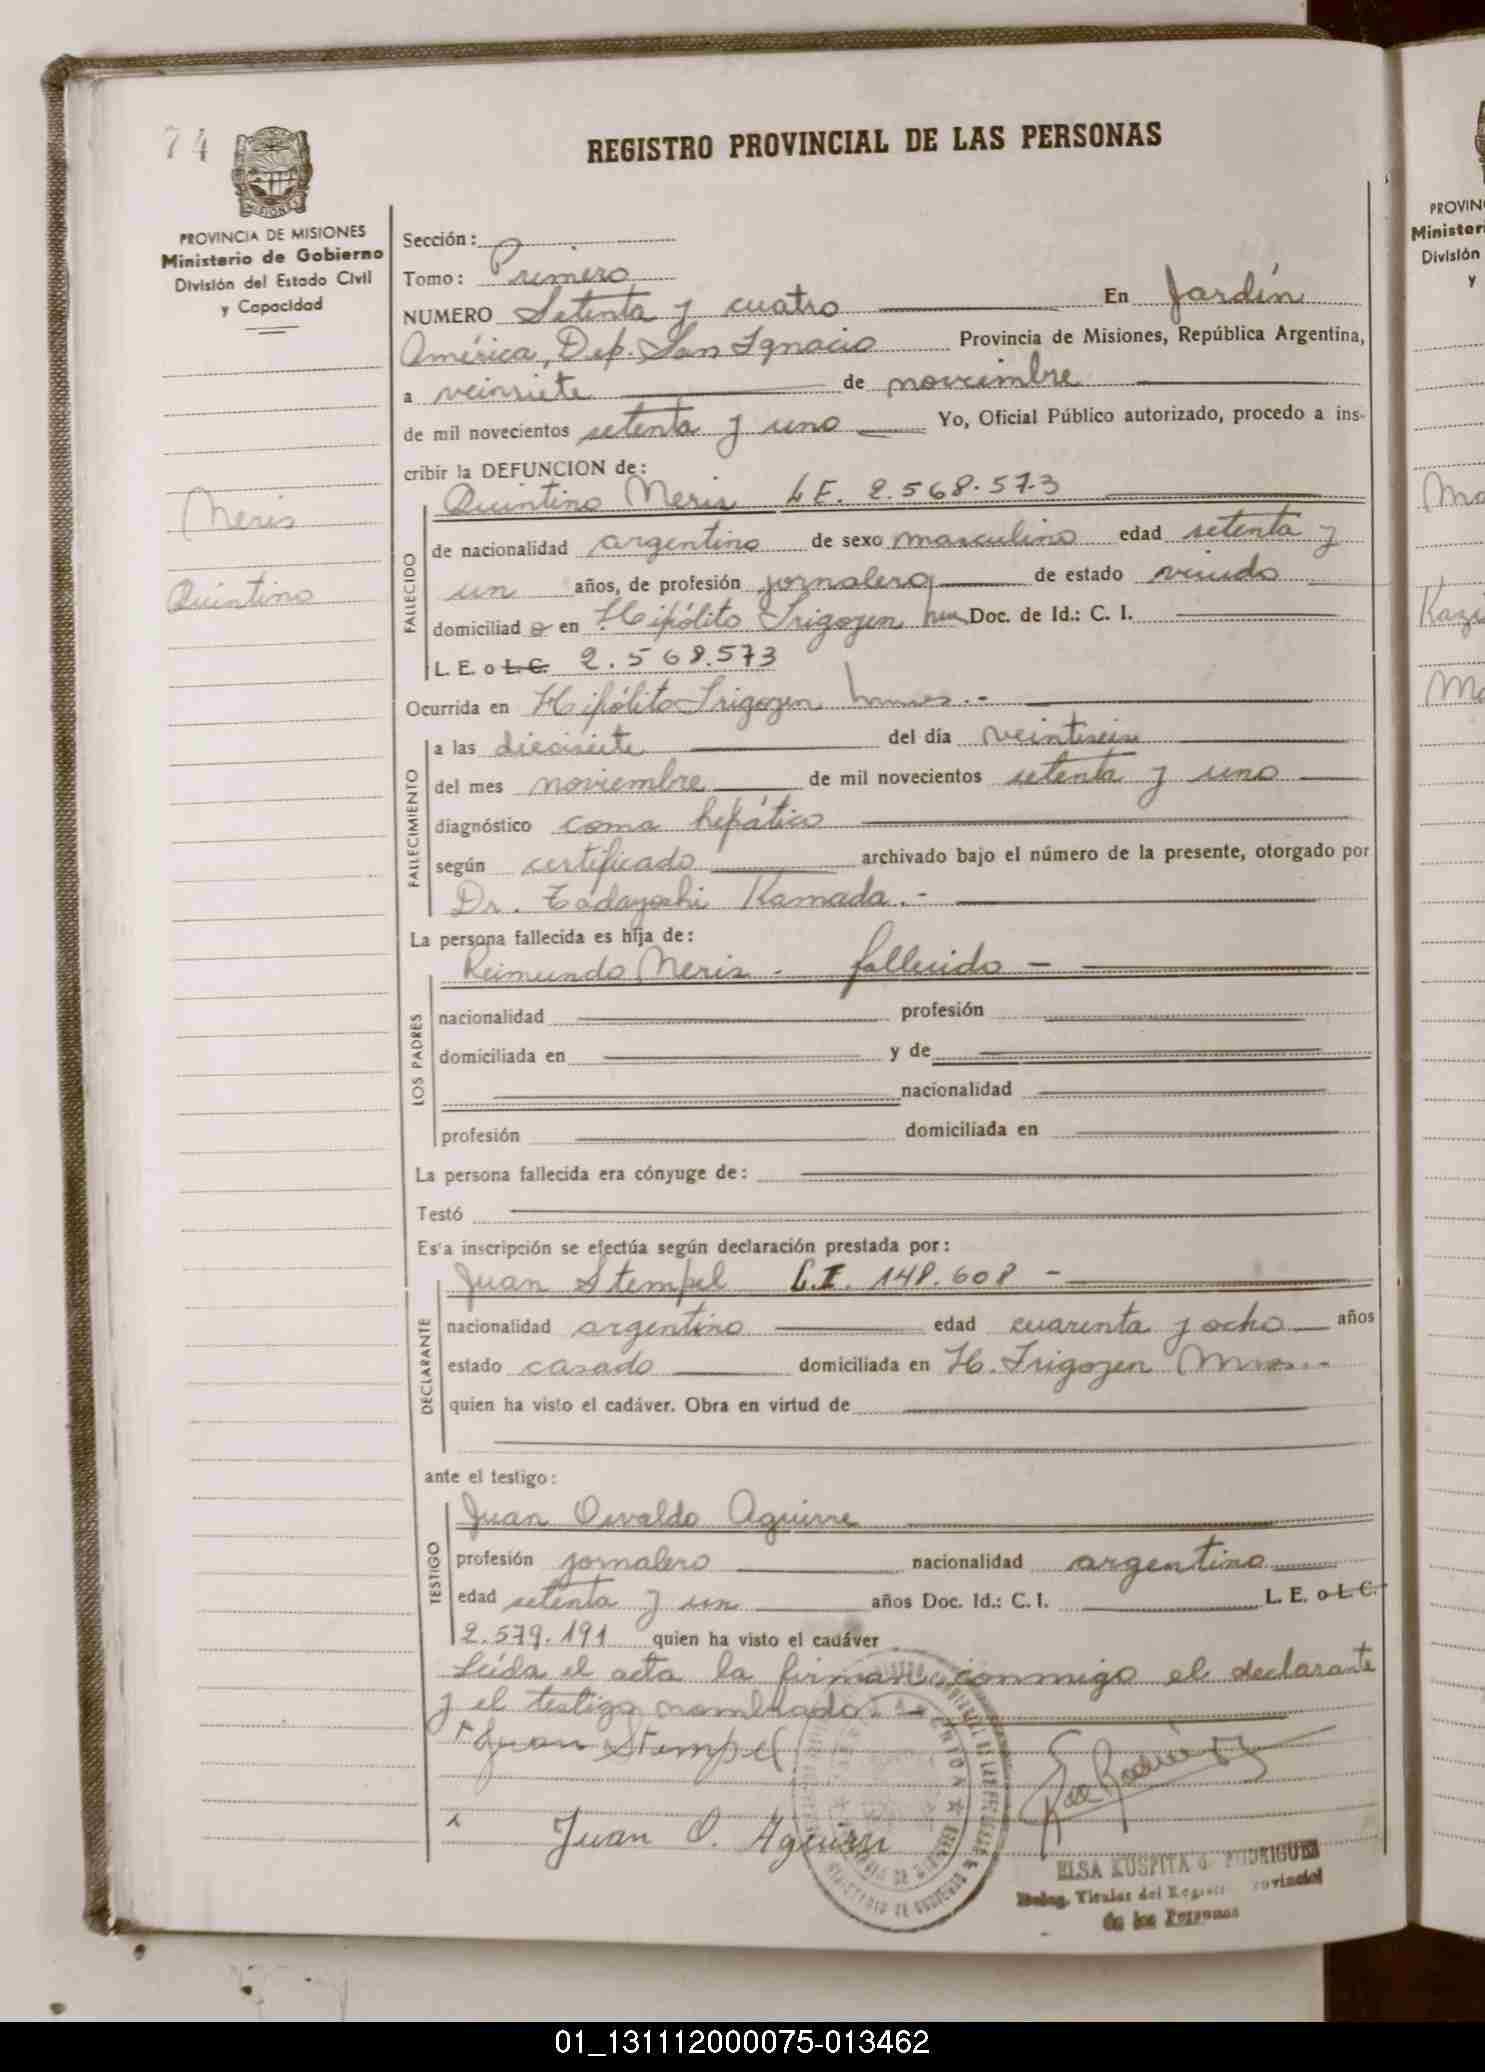 74
REGISTRO PROVINCIAL DE LAS PERSONAS
MISIONES
PROVINCIA DE MISIONES
Ministerio de Gobierno
División del Estado Civil
y Capacidad
Sección:
Tomo: Primero
NUMERO Setenta y cuatro En Jardín
América, Dep. San Ignacio Provincia de Misiones, República Argentina,
a veinsiete de noviembre
de mil novecientos setenta y uno Yo, Oficial Público autorizado, procedo a ins-
cribir la DEFUNCION de:
Neris
Quintino
Quintino Neris L E. 2.568.573
FALLECIDO
de nacionalidad argentino de sexo masculino edad setenta y
un años, de profesión jornalero de estado viudo
domiciliad o en Hipólito Irigoyen Doc. de Id.: C. I.
L. E. o L. C. 2.568.573
Ocurrida en Hipólito Irigoyen
FALLECIMIENTO
a las diecisiete del día veintiseis
del mes noviembre de mil novecientos setenta y uno
diagnóstico coma hepático
según certificado archivado bajo el número de la presente, otorgado por
Dr. Tadayoshi Kamada.-
La persona fallecida es hija de:
Reimundo Neris - fallecido -
LOS PADRES
nacionalidad profesión
domiciliada en y de
nacionalidad
profesión domiciliada en
La persona fallecida era cónyuge de:
Testó
Es'a inscripción se efectúa según declaración prestada por:
Juan Stempel C.I. 148.608 -
DECLARANTE
nacionalidad argentino edad cuarenta y ocho años
estado casado domiciliada en H. Irigoyen
quien ha visto el cadáver. Obra en virtud de
ante el testigo:
Juan Osvaldo Aguirre
TESTIGO
profesión jornalero nacionalidad argentino
edad setenta y un años Doc. Id.: C. I. L. E. o L C.
2.579.191 quien ha visto el cadáver
Leída el acta la firman conmigo el declarante
y el testigo nombrado
Juan Stempel
Juan O. Aguirre
ELSA KUSPITA d. RODRIGUEZ
Deleg. Titular del Registro Provincial
de las Personas
PROVIN
Minister
División
y
01_131112000075-013462